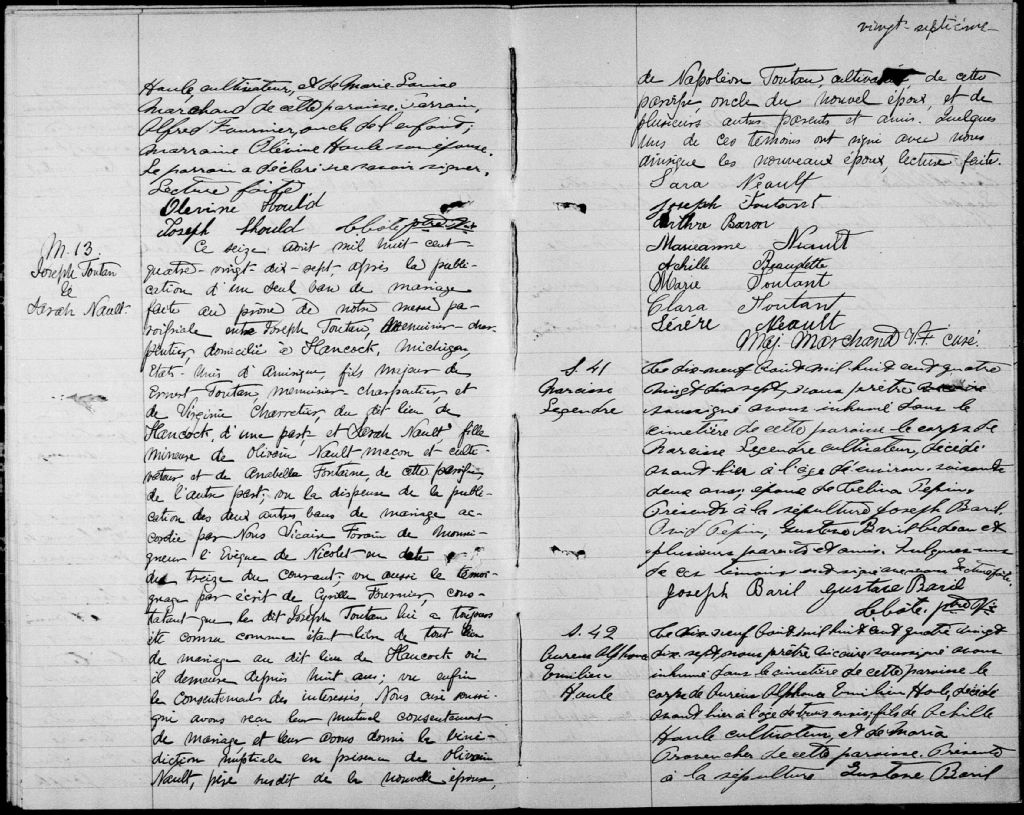 Houle, cultivateur, et de Marie Louise
Marchand de cette paroisse; parrain,
Alfred Fournier, oncle de l'enfant;
marraine Olivine Houle son épouse.
Le parrain a déclaré ne savoir signer.
Lecture faite
Olevine Hould
Joseph Hould
M. 13.
Joseph Toutan
&
Sarah Nault.
Ce seize août mil huit cent
quatre-vingt-dix-sept après la publi-
cation d'un seul ban de mariage
faite au prône de notre messe pa-
roissiale entre Joseph Toutan, menuisier char-
pentier, domicilié à Hancock, Michigan,
Etats-Unis d'Amérique, fils majeur de
Ernest Toutan, menuisier-charpentier, et
de Virginie Charretier, du dit lieu de
Hancock, d'une part, et Sarah Nault, fille
mineure de Olivain Nault maçon et culti-
vateur et de Anabella Fontaine, de cette paroisse,
de l'autre part; vu la dispense de la publi-
cation des deux autres bans de mariage ac-
cordée par Nous Vicaire Forain de Monsei-
gneur l'Evêque de Nicolet en date
du treize du courant; vu aussi le témoi-
gnage par écrit de Cyrille Fournier, cons-
tatant que le dit Joseph Toutan lui a toujours
été connu comme étant libre de tout lien
de mariage au dit lieu de Hancock où
il demeure depuis huit ans; vu enfin
le consentement des intéressés, Nous curé soussi-
gné avons reçu leur mutuel consentement
de mariage et leur avons donné la béné-
diction nuptiale en présence de Olivain
Nault, père susdit de la nouvelle épouse,
vingt-septième
de Napoléon Toutan, cultivateur de cette
paroisse, oncle du nouvel époux, et de
plusieurs autres parents et amis. Quelques
uns de ces témoins ont signé avec nous
ainsi que les nouveaux époux, lecture faite.
Sara Neault
Joseph Toutant
Arthre Baron
Marieanne Neault
Achille Beaudette
Marie Toutant
Clara Toutant
Sévère Neault
Maj. Marchand V.F. curé.
S. 41
Narcisse
Legendre
Le dix-neuf août mil huit cent quatre
vingt dix sept, nous prêtre vicaire
soussigné avons inhumé dans le
cimetière de cette paroisse le corps de
Narcisse Legendre cultivateur, décédé
avant hier à l'âge d'environ soixante
deux ans, époux de Celina Pepin.
Présents à la sépulture Joseph Baril
Pepin, Gustave Baril bedeau et
plusieurs parents et amis. Quelques uns
de ces témoins ont signé avec nous
Joseph Baril Gustave Baril
S. 42
Aureus Alphonse
Emilien
Houle
Le dix neuf août mil huit cent quatre vingt
dix sept, nous prêtre vicaire soussigné avons
inhumé dans le cimetière de cette paroisse le
corps de Aureus Alphonse Emilien Houle, décédé
avant hier à l'âge de trois mois, fils de Achille
Houle cultivateur, et de Maria
Provencher de cette paroisse. Présents
à la sépulture Gustave Baril